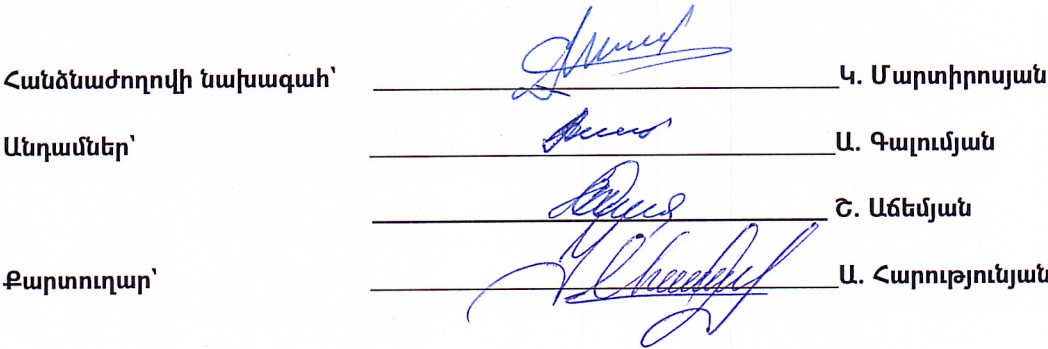 Հանձնաժողովի նախագահ՝ Կ. Մարտիրոսյան
Անդամներ՝ Ա. Գալումյան
Շ. Աճեմյան
Քարտուղար՝ Ա. Հարությունյան